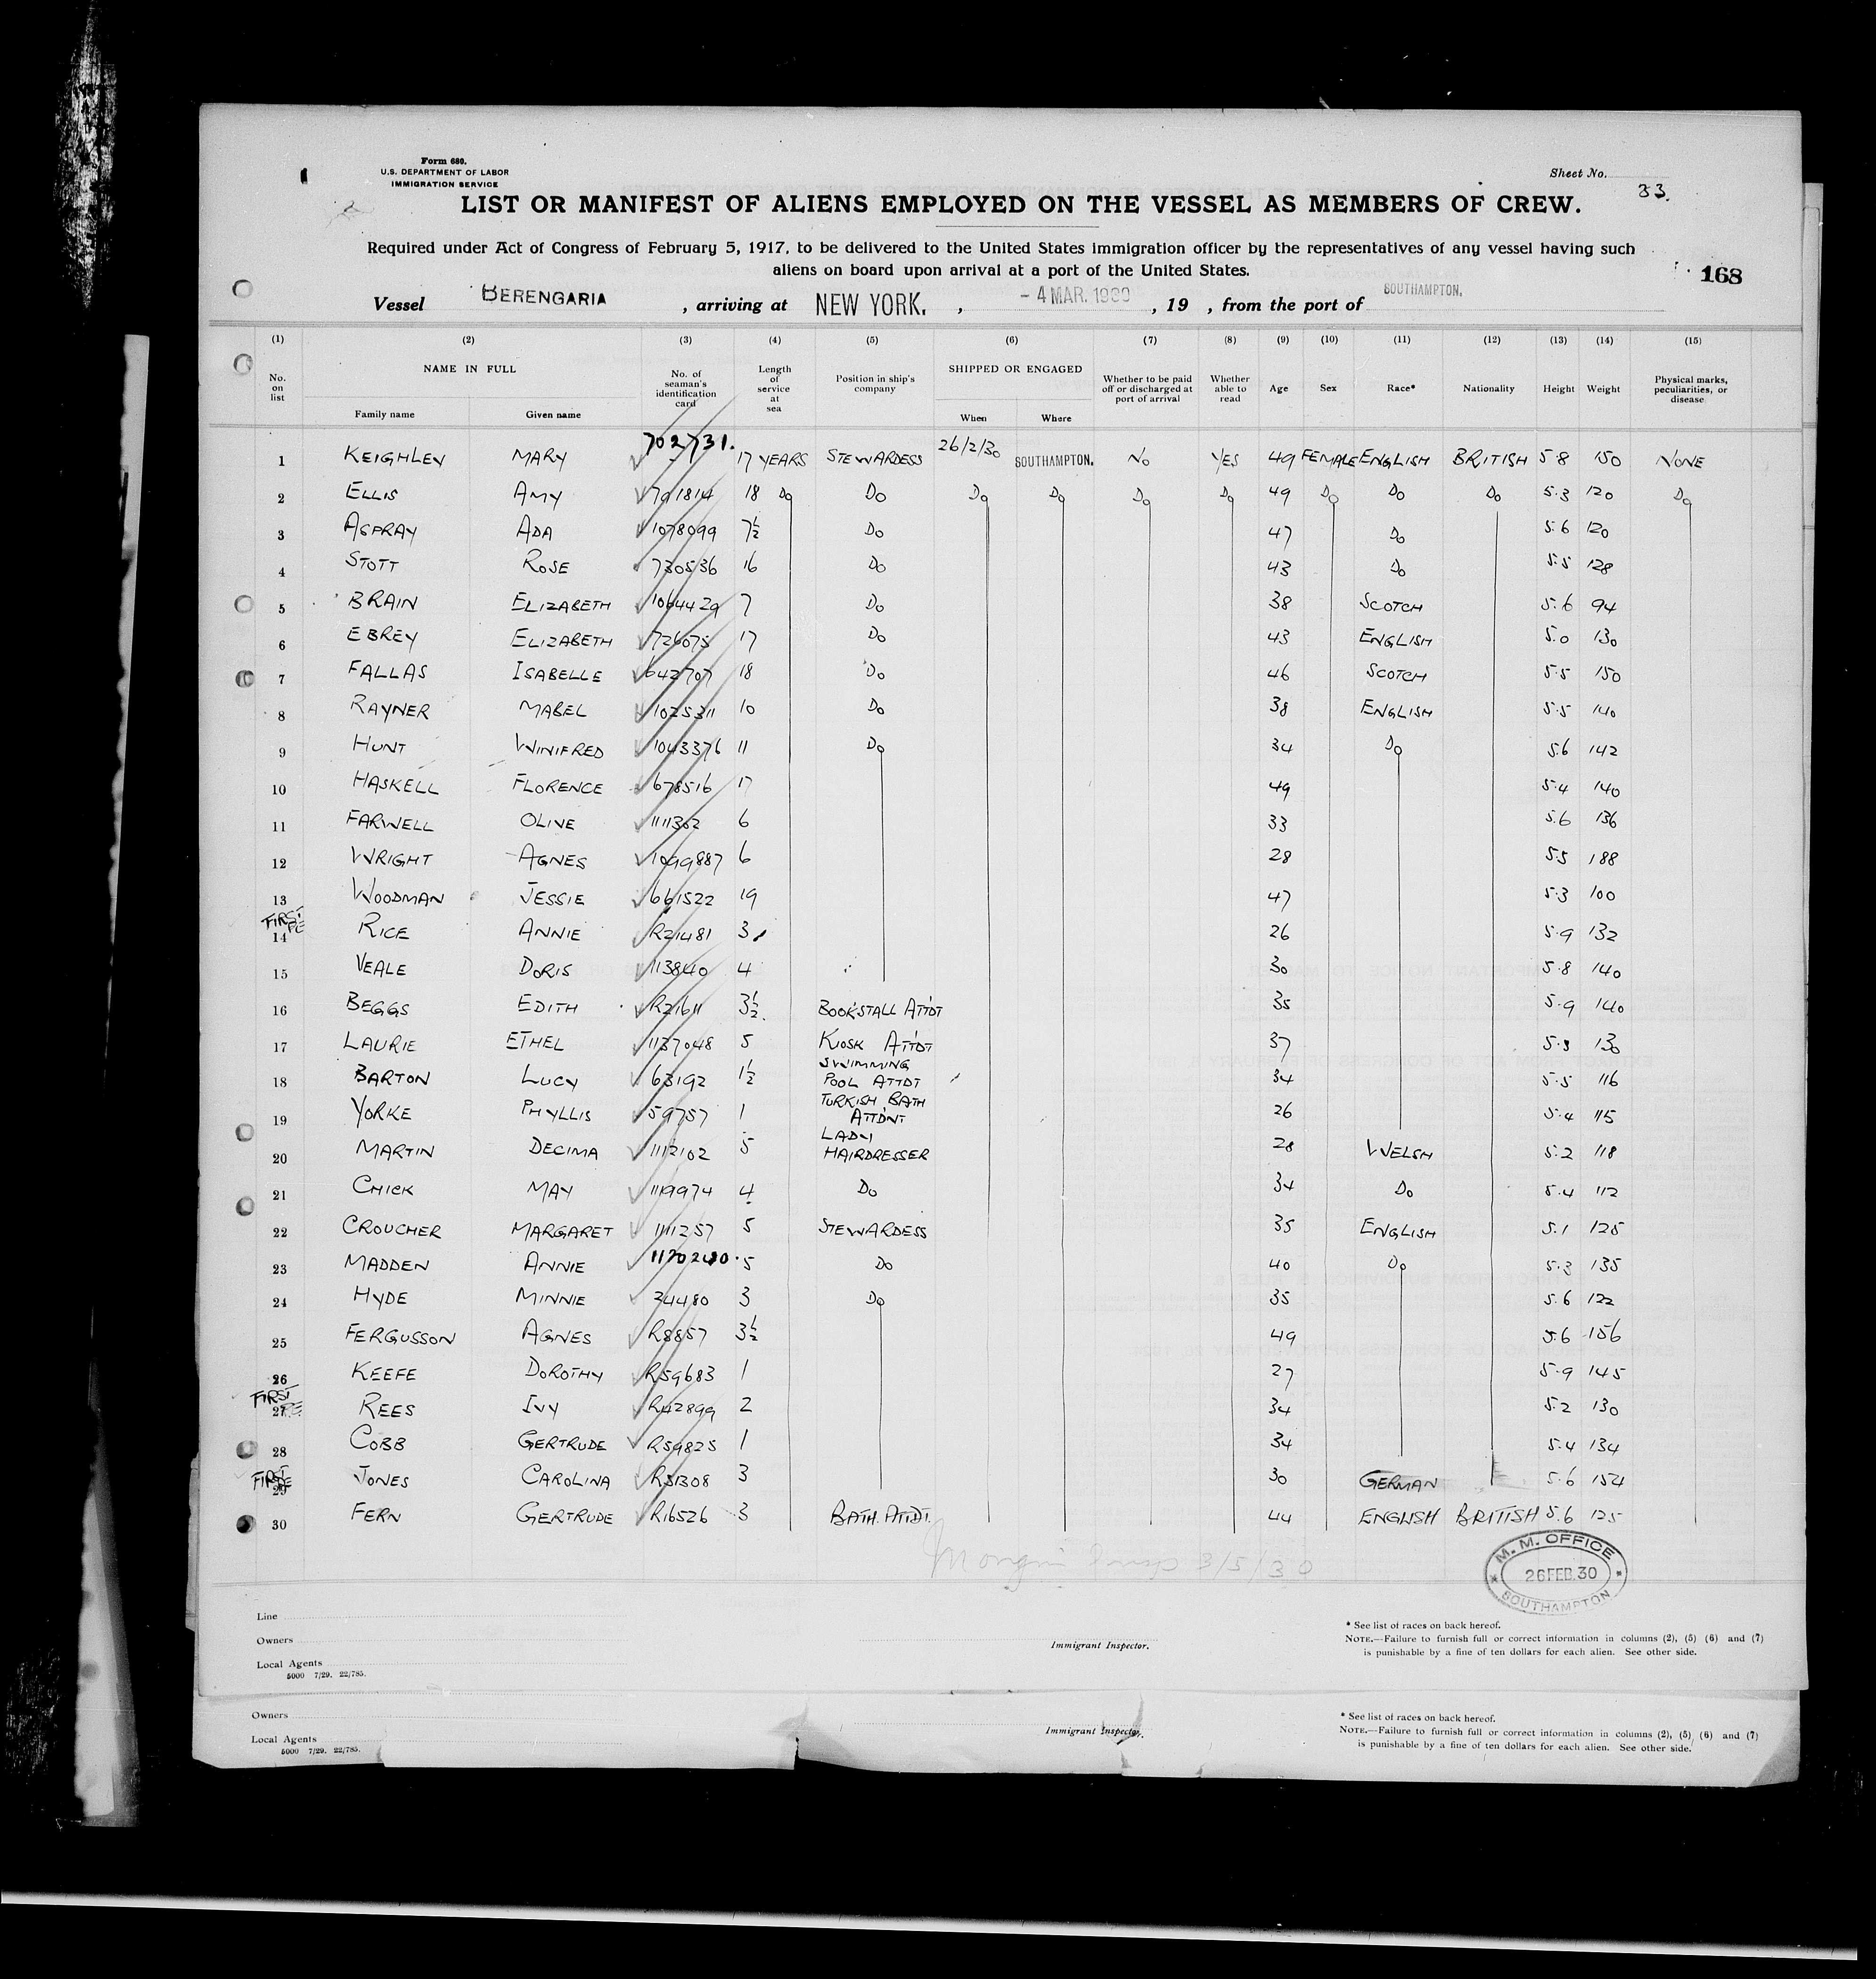 Form 680.
U.S. DEPARTMENT OF LABOR
IMMIGRATION SERVICE
Sheet No. 33.
LIST OR MANIFEST OF ALIENS EMPLOYED ON THE VESSEL AS MEMBERS OF CREW.
Required under Act of Congress of February 5, 1917, to be delivered to the United States immigration officer by the representatives of any vessel having such
aliens on board upon arrival at a port of the United States.
168
Vessel BERENGARIA, arriving at NEW YORK. , - 4 MAR. 1930, 19 , from the port of SOUTHAMPTON.
(1) (2) (3) (4) (5) (6) (7) (8) (9) (10) (11) (12) (13) (14) (15)
No. on list NAME IN FULL Family name Given name No. of seaman's identification card Length of service at sea Position in ship's company SHIPPED OR ENGAGED When Where Whether to be paid off or discharged at port of arrival Whether able to read Age Sex Race* Nationality Height Weight Physical marks, peculiarities, or disease
1 KEIGHLEY MARY 702731. 17 YEARS STEWARDESS 26/2/30 SOUTHAMPTON. No YES 49 FEMALE ENGLISH BRITISH 5.8 150 NONE
2 ELLIS AMY 791814 18 Do Do Do Do Do Do 49 Do Do Do 5.3 120 Do
3 ASPRAY ADA 1078099 7½ Do 47 Do 5.6 120
4 STOTT ROSE 730536 16 Do 43 Do 5.5 128
5 BRAIN ELIZABETH 1064429 7 Do 38 SCOTCH 5.6 94
6 EBREY ELIZABETH 726075 17 Do 43 ENGLISH 5.0 130
7 FALLAS ISABELLE 642707 18 Do 46 SCOTCH 5.5 150
8 RAYNER MABEL 1025311 10 Do 38 ENGLISH 5.5 140
9 HUNT WINIFRED 1043376 11 Do 34 Do 5.6 142
10 HASKELL FLORENCE 678516 17 49 5.4 140
11 FARWELL OLIVE 1111362 6 33 5.6 136
12 WRIGHT AGNES 1099887 6 28 5.5 188
13 WOODMAN JESSIE 661522 19 47 5.3 100
FIRST
14 RICE ANNIE R21481 3 26 5.9 132
15 VEALE DORIS 113840 4 30 5.8 140
16 BEGGS EDITH R21611 3½. 35 BOOKSTALL ATTDT 5.9 140
17 LAURIE ETHEL 1137048 5 KIOSK ATTDT 37 5.3 130
18 BARTON LUCY 63192 1½ SWIMMING POOL ATTDT 34 5.5 116
19 YORKE PHYLLIS 59757 1 TURKISH BATH ATTDNT 26 5.4 115
20 MARTIN DECIMA 1112102 5 LADY HAIRDRESSER 28 WELSH 5.2 118
21 CHICK MAY 1119974 4 Do 34 Do 5.4 112
22 CROUCHER MARGARET 1111257 5 STEWARDESS 35 ENGLISH 5.1 125
23 MADDEN ANNIE 1170240 5 Do 40 Do 5.3 135
24 HYDE MINNIE 34480 3 Do 35 5.6 122
25 FERGUSSON AGNES R8857 3½ 49 5.6 156
26 KEEFE DOROTHY R59683 1 27 5.9 145
FIRST
27 REES IVY R42899 2 34 5.2 130
28 COBB GERTRUDE R59825 1 34 5.4 134
FIRST
29 JONES CAROLINA R31308 3 30 GERMAN 5.6 154
30 FERN GERTRUDE R16526 3 BATH. ATTDT. 44 ENGLISH BRITISH 5.6 125
3/5/30
M. M. OFFICE
26 FEB. 30
SOUTHAMPTON
Line
Owners
Local Agents
5000 7/29. 22/785.
Immigrant Inspector.
* See list of races on back hereof.
NOTE.—Failure to furnish full or correct information in columns (2), (5) (6) and (7)
is punishable by a fine of ten dollars for each alien. See other side.
Owners
Local Agents
5000 7/29. 22/785.
Immigrant Inspector.
* See list of races on back hereof.
NOTE.—Failure to furnish full or correct information in columns (2), (5) (6) and (7)
is punishable by a fine of ten dollars for each alien. See other side.